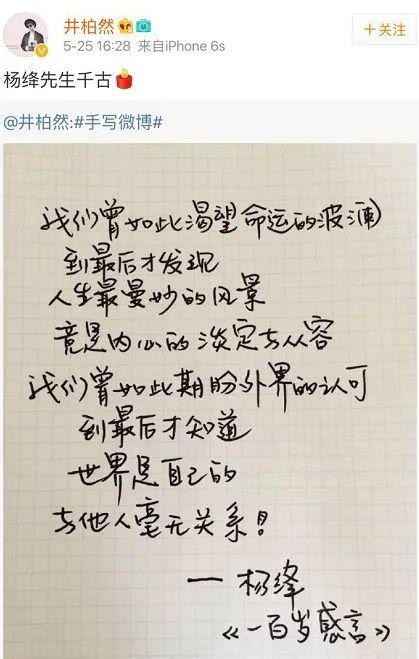 井柏然
5-25 16:28 来自iPhone 6s
+关注
杨绛先生千古
@井柏然:#手写微博#
我们曾如此渴望命运的波澜
到最后才发现
人生最曼妙的风景
竟是内心的淡定与从容
我们曾如此期盼外界的认可
到最后才知道
世界是自己的
与他人毫无关系！
一杨绛
《一百岁感言》